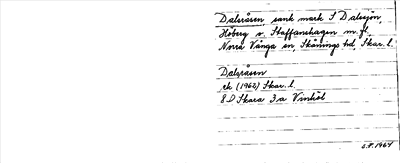 Dalsråsen sank mark S Dalsjön,
Höberg o. Staffanshagen m.fl.
Norra Vånga sn, Skånings hd, Skar. l.
Dalsråsen
ek (1962) Skar. l.
8 D Skara 3 a Vinköl
S.F. 1964